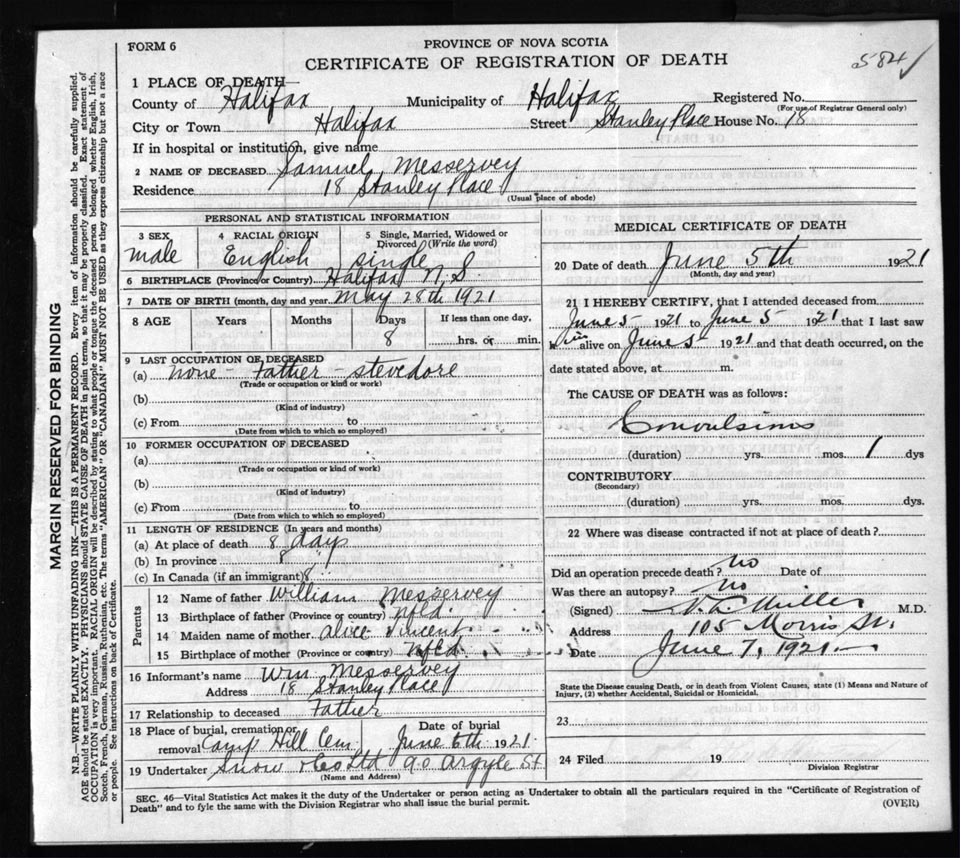 FORM 6
PROVINCE OF NOVA SCOTIA
CERTIFICATE OF REGISTRATION OF DEATH
584 ✓
1 PLACE OF DEATH—
County of Halifax Municipality of Halifax Registered No.
(For use of Registrar General only)
City or Town Halifax Street Stanley Place House No. 18
If in hospital or institution, give name
2 NAME OF DECEASED Samuel Messervey
Residence 18 Stanley Place
(Usual place of abode)
PERSONAL AND STATISTICAL INFORMATION
3 SEX 4 RACIAL ORIGIN 5 Single, Married, Widowed or Divorced (Write the word)
Male English single
6 BIRTHPLACE (Province or Country) Halifax N.S.
7 DATE OF BIRTH (month, day and year May 28th 1921
8 AGE Years Months Days If less than one day,
8 hrs. or min.
9 LAST OCCUPATION OF DECEASED
(a) None - Father - stevedore
(Trade or occupation or kind or work)
(b)
(Kind of industry)
(c) From to
(Date from which to which so employed)
10 FORMER OCCUPATION OF DECEASED
(a)
(Trade or occupation or kind of work)
(b)
(Kind of industry)
(c) From to
(Date from which to which so employed)
11 LENGTH OF RESIDENCE (In years and months)
(a) At place of death 8 days
(b) In province 8 "
(c) In Canada (if an immigrant) 8
Parents
12 Name of father William Messervey
13 Birthplace of father (Province or country) Nfld.
14 Maiden name of mother Alice Vincent
15 Birthplace of mother (Province or country) Nfld
16 Informant's name Wm Messervey
Address 18 Stanley Place
17 Relationship to deceased Father
18 Place of burial, cremation or removal Camp Hill Cem. Date of burial June 6th 1921.
19 Undertaker Snow & Co Ltd 90 Argyle St
(Name and Address)
MEDICAL CERTIFICATE OF DEATH
20 Date of death June 5th 1921
(Month, day and year)
21 I HEREBY CERTIFY, that I attended deceased from
June 5 1921 to June 5 1921 that I last saw
him alive on June 5 1921 and that death occurred, on the
date stated above, at m.
The CAUSE OF DEATH was as follows:
Convulsions
(duration) yrs. mos. 1 dys
CONTRIBUTORY
(Secondary)
(duration) yrs. mos. dys.
22 Where was disease contracted if not at place of death?
Did an operation precede death? No Date of
Was there an autopsy? No
(Signed) Miller M.D.
Address 105 Morris St.
Date June 7, 1921
State the Disease causing Death, or in death from Violent Causes, state (1) Means and Nature of
Injury, (2) whether Accidental, Suicidal or Homicidal.
23
24 Filed 19
Division Registrar
SEC. 46—Vital Statistics Act makes it the duty of the Undertaker or person acting as Undertaker to obtain all the particulars required in the "Certificate of Registration of
Death" and to fyle the same with the Division Registrar who shall issue the burial permit.
(OVER)
MARGIN RESERVED FOR BINDING
N.B.—WRITE PLAINLY, WITH UNFADING INK—THIS IS A PERMANENT RECORD. Every item of information should be carefully supplied.
AGE should be stated EXACTLY. PHYSICIANS should STATE CAUSE OF DEATH in plain terms, so that it may be properly classified. Exact statement of
OCCUPATION is very important. RACIAL ORIGIN will be described by stating to what people or tongue the deceased person belonged whether English, Irish,
Scotch, French, German, Russian, Ruthenian, etc. The terms "AMERICAN" OR "CANADIAN" MUST NOT BE USED as they express citizenship but not a race
or people. See instructions on back of Certificate.